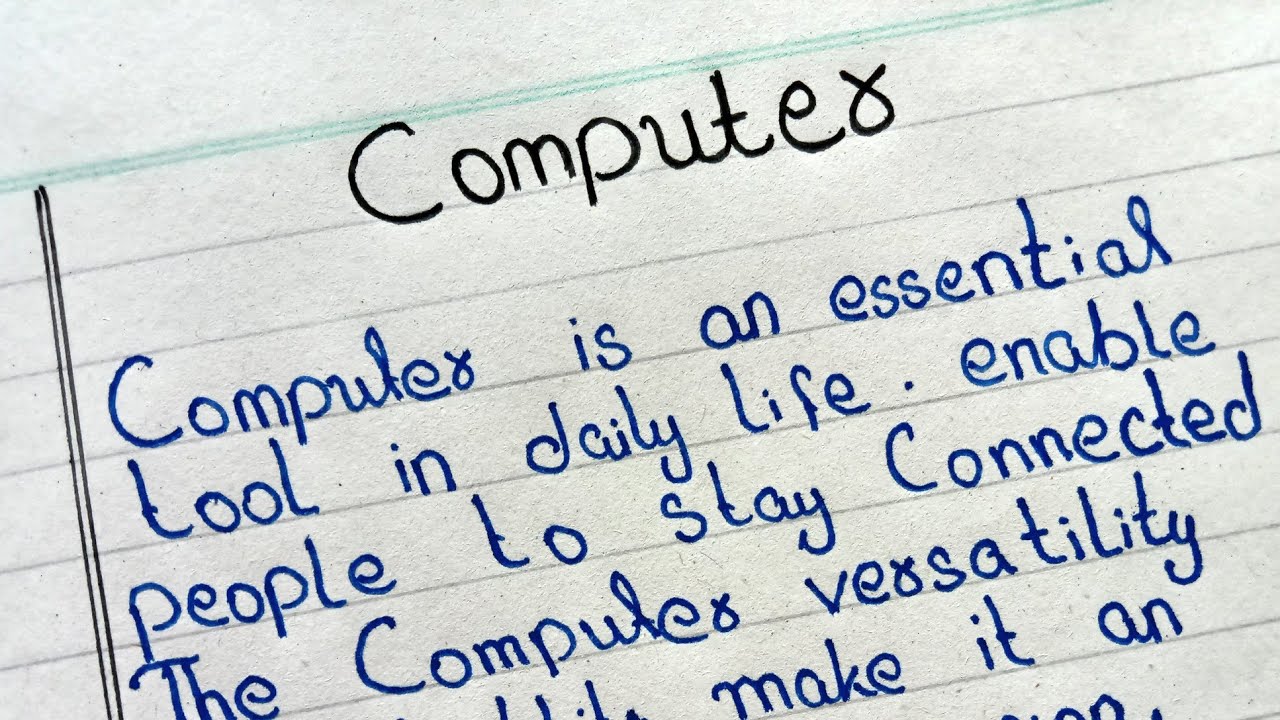 Computer
Computer is an essential
tool in daily life. enable
people to stay Connected
The Computer versatility
make it an